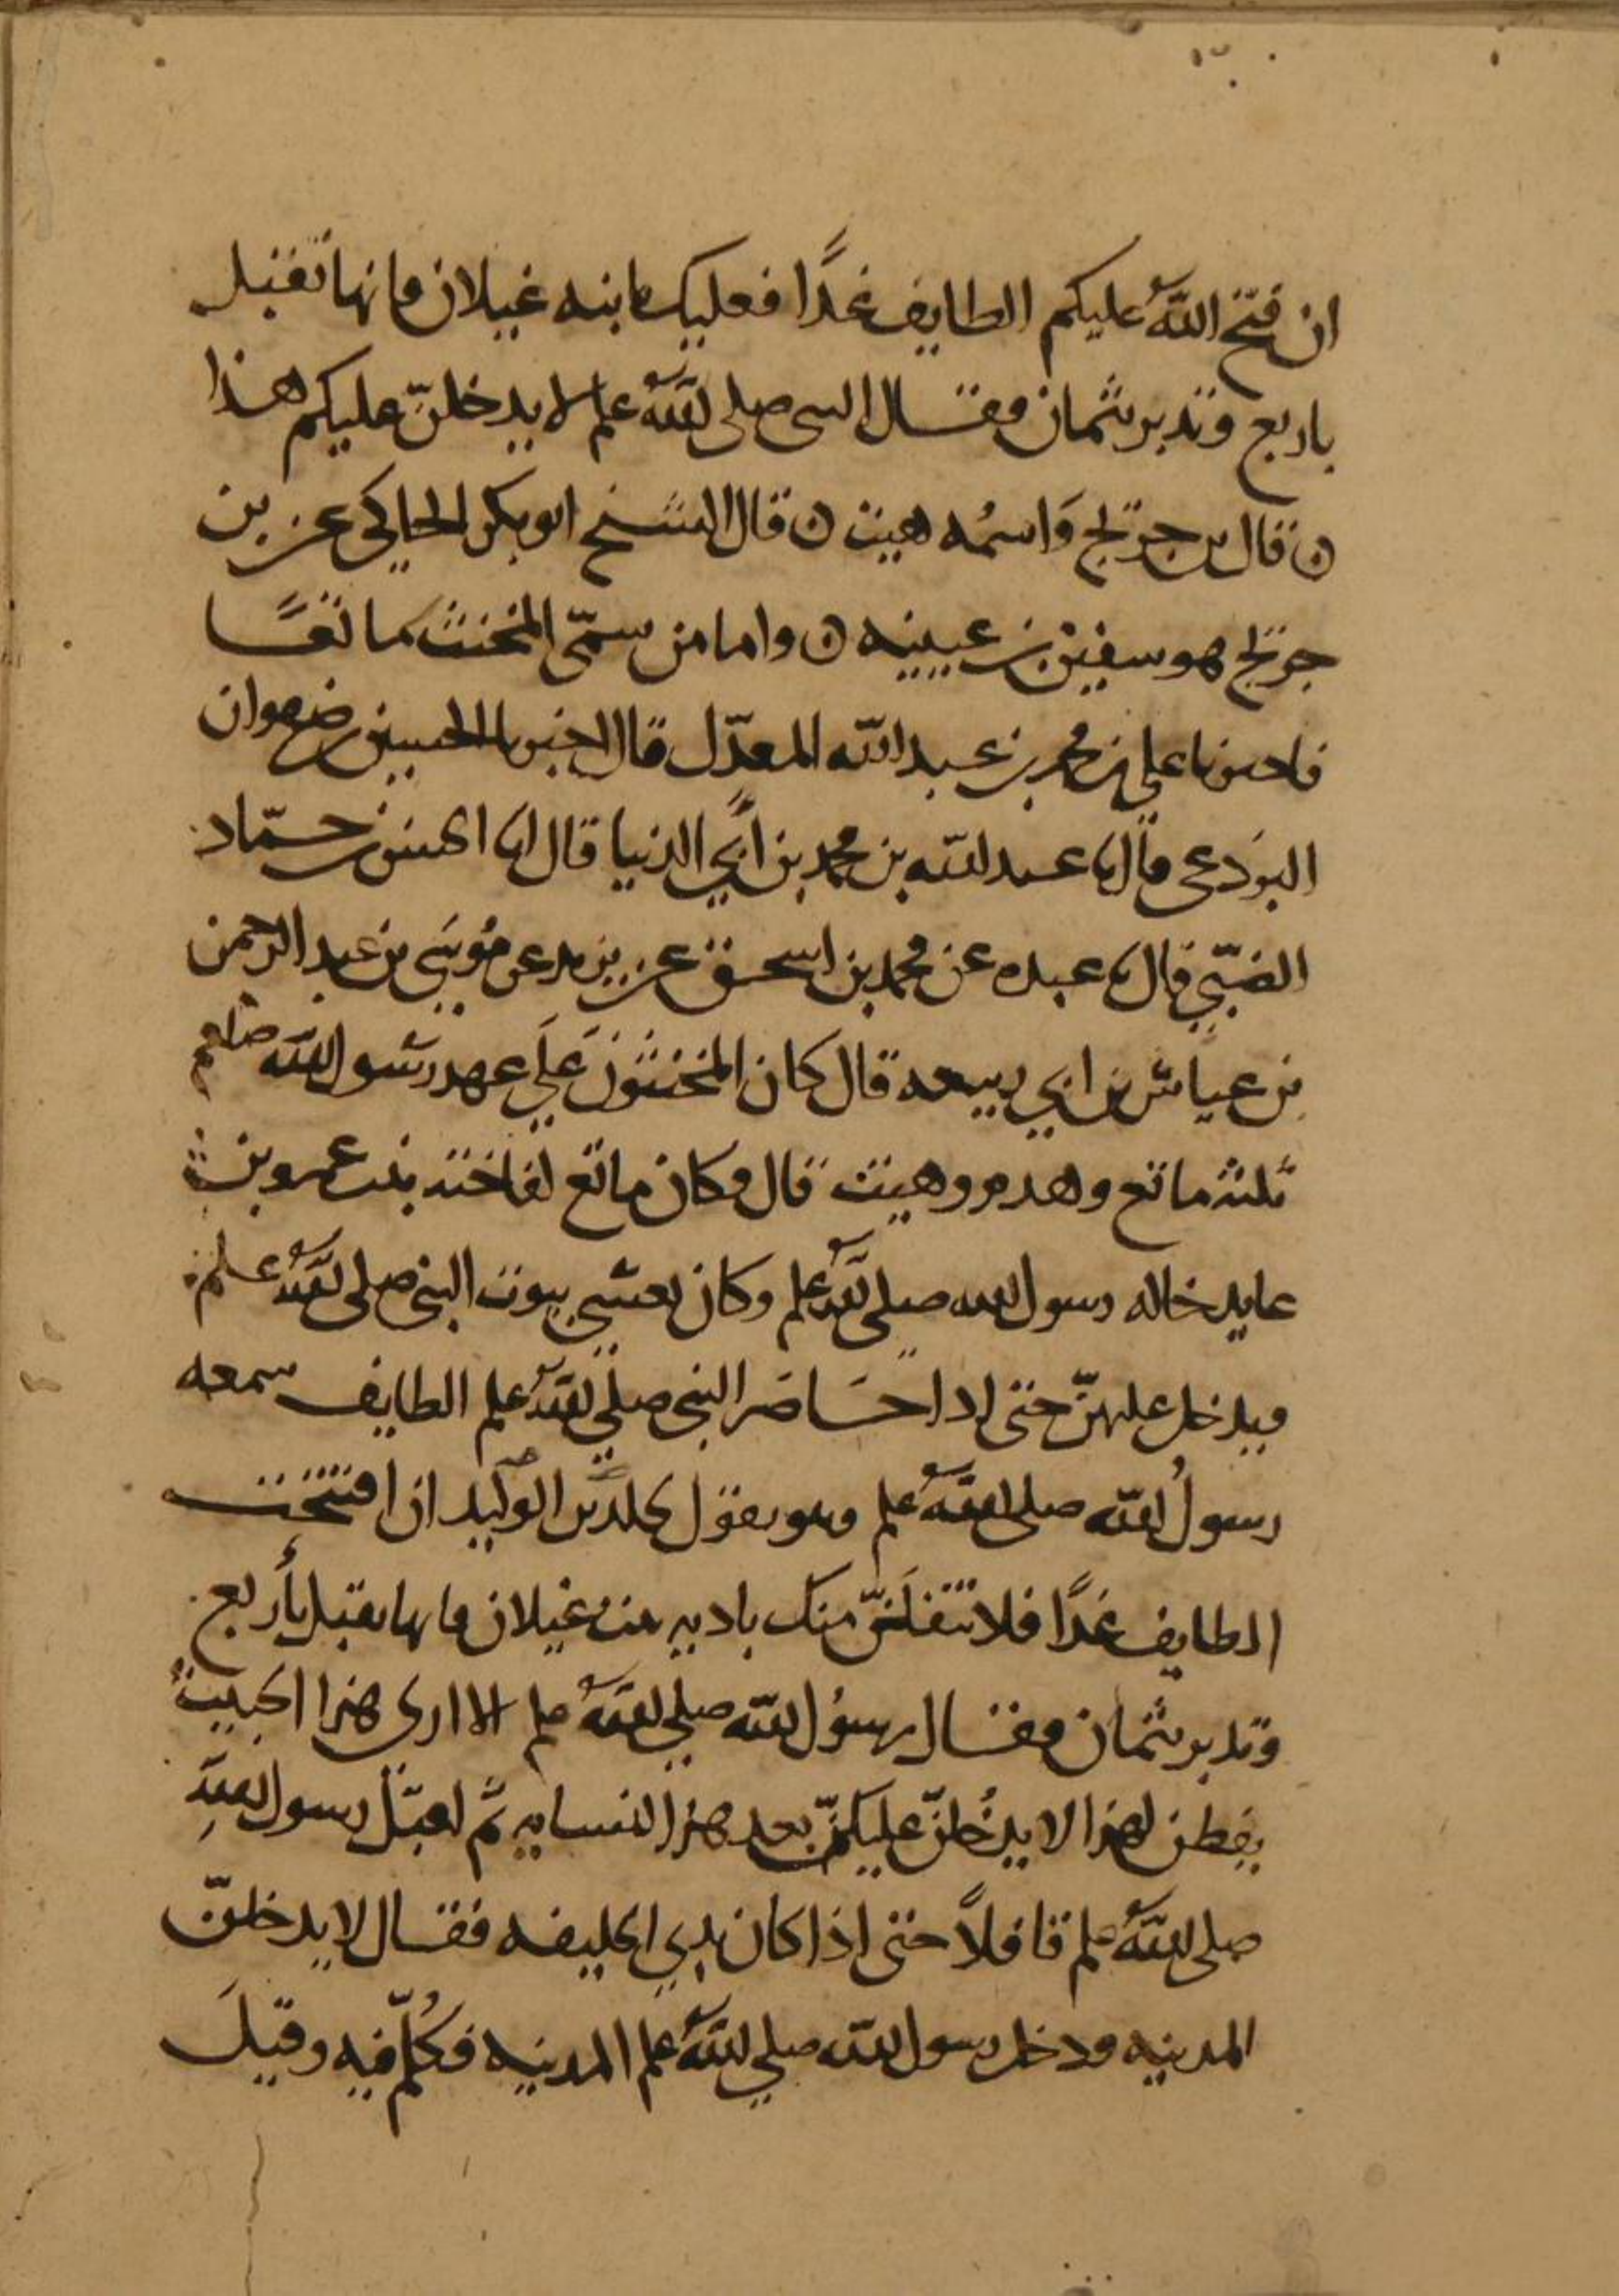 ان فتح الله عليكم الطايف غدًا فعليك بابنه غيلان فانها تقبل
باربع وتدبر بثمان فقال النبي صلى الله علم لا يدخلنّ عليكم هذا
ه قال بن جريج وَاسمُه هيت ه قال الشيخ ابو بكر الحاكي عن بن
جريج هو سفين بن عيينه ه واما من سمّى المخنث ماتعًا
فاخبرنا علي بن محمد بن عبد الله المعدّل قال اخبرنا الحسين بن صفوان
البرذعي قال نا عبد الله بن محمد بن أبي الدنيا قال نا الحسن بن حمّاد
الضبّي قال نا عبده عن محمد بن اسحق عن يزيد عن مُوسَى بن عبد الرحمن
بن عياش بن ابي ربيعه قال كان المخنثونَ عَلَى عهد رسول الله صلعم
ثلثه ماتع وهدم وهيت قال وكان ماتع لفاخته بنت عمرو بن
عايد خاله رسول الله صلى الله علم وكان يغشي بيوت النبي صلى الله علم
ويدخل عليهنّ حتى اذا حَاصَر النبي صلى الله علم الطايف سمعه
رسولُ الله صلى الله علم وهو يقول لخلد بن الوليد ان افتتحت
الطايف غدًا فلا تنفلَتنّ منك باديه بنت غيلان فانها تقبل بأربع
وتدبر بثمان فقال رسُول الله صلى الله علم الا ارى هذا الخبيث
يفطن لهذا لا يدخُلنّ عليكنّ بعد هذا لنسايه ثم اقبَل رسول اللهِ
صلى الله علم قافلاً حتى اذا كان بذي الحليفه فقال لا يدخلنّ
المدينه ودخل رسول الله صلى الله علم المدينه فكُلّم فيه وقيلَ